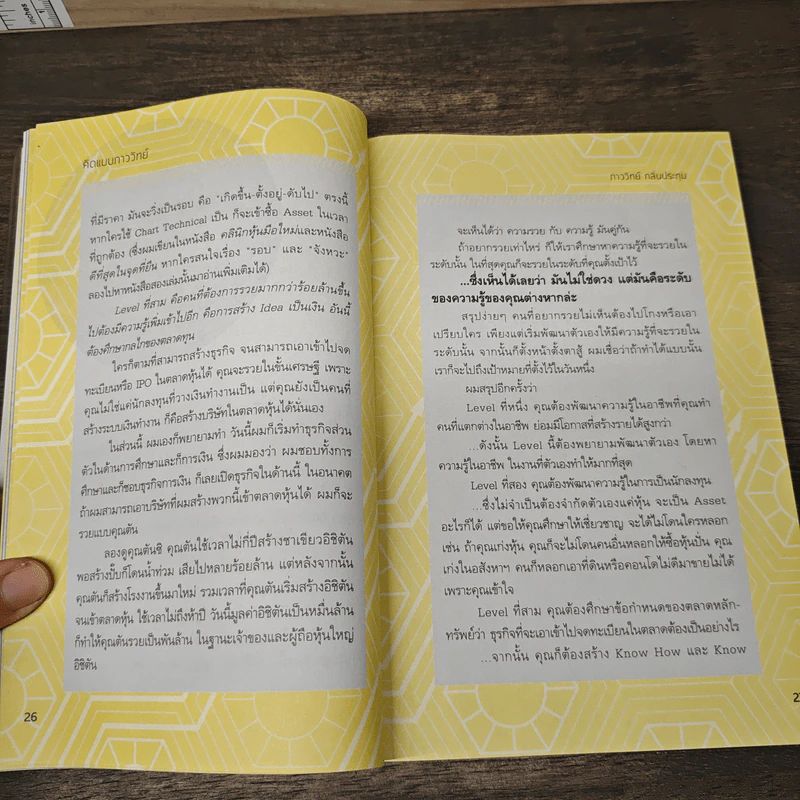 inches
คิดแบบภาววิทย์
ที่มีราคา มันจะวิ่งเป็นรอบ คือ "เกิดขึ้น-ตั้งอยู่-ดับไป" ตรงนี้
หากใครใช้ Chart Technical เป็น ก็จะเข้าซื้อ Asset ในเวลา
ที่ถูกต้อง (ซึ่งผมเขียนในหนังสือ คลินิกหุ้นมือใหม่และหนังสือ
ดีที่สุดในจุดที่ยืน หากใครสนใจเรื่อง "รอบ" และ "จังหวะ"
ลองไปหาหนังสือสองเล่มนั้นมาอ่านเพิ่มเติมได้)
Level ที่สาม คือคนที่ต้องการรวยมากกว่าร้อยล้านขึ้น
ไปต้องมีความรู้เพิ่มเข้าไปอีก คือการสร้าง Idea เป็นเงิน อันนี้
ต้องศึกษากลไกของตลาดทุน
ใครก็ตามที่สามารถสร้างธุรกิจ จนสามารถเอาเข้าไปจด
ทะเบียนหรือ IPO ในตลาดหุ้นได้ คุณจะรวยในขั้นเศรษฐี เพราะ
คุณไม่ใช่แค่นักลงทุนที่วางเงินทำงานเป็น แต่คุณยังเป็นคนที่
สร้างระบบเงินทำงาน ก็คือสร้างบริษัทในตลาดหุ้นได้นั่นเอง
ในส่วนนี้ ผมเองก็พยายามทำ วันนี้ผมก็เริ่มทำธุรกิจส่วน
ตัวในด้านการศึกษาและก็การเงิน ซึ่งผมมองว่า ผมชอบทั้งการ
ศึกษาและก็ชอบธุรกิจการเงิน ก็เลยเปิดธุรกิจในด้านนี้ ในอนาคต
ถ้าผมสามารถเอาบริษัทที่ผมสร้างพวกนี้เข้าตลาดหุ้นได้ ผมก็จะ
รวยแบบคุณตัน
ลองดูคุณตันซิ คุณตันใช้เวลาไม่กี่ปีสร้างชาเขียวอิชิตัน
พอสร้างปั๊บก็โดนน้ำท่วม เสียไปหลายร้อยล้าน แต่หลังจากนั้น
คุณตันก็สร้างโรงงานขึ้นมาใหม่ รวมเวลาที่คุณตันเริ่มสร้างอิชิตัน
จนเข้าตลาดหุ้น ใช้เวลาไม่ถึงห้าปี วันนี้มูลค่าอิชิตันเป็นหมื่นล้าน
ก็ทำให้คุณตันรวยเป็นพันล้าน ในฐานะเจ้าของและผู้ถือหุ้นใหญ่
อิชิตัน
26
ภาววิทย์ กลิ่นประทุม
จะเห็นได้ว่า ความรวย กับ ความรู้ มันคู่กัน
ถ้าอยากรวยเท่าไหร่ ก็ให้เราศึกษาหาความรู้ที่จะรวยใน
ระดับนั้น ในที่สุดคุณก็จะรวยในระดับที่คุณตั้งเป้าไว้
...ซึ่งเห็นได้เลยว่า มันไม่ใช่ดวง แต่มันคือระดับ
ของความรู้ของคุณต่างหากล่ะ
สรุปง่ายๆ คนที่อยากรวยไม่เห็นต้องไปโกงหรือเอา
เปรียบใคร เพียงแต่เริ่มพัฒนาตัวเองให้มีความรู้ที่จะรวยใน
ระดับนั้น จากนั้นก็ตั้งหน้าตั้งตาสู้ ผมเชื่อว่าถ้าทำได้แบบนั้น
เราก็จะไปถึงเป้าหมายที่ตั้งไว้ในวันหนึ่ง
ผมสรุปอีกครั้งว่า
Level ที่หนึ่ง คุณต้องพัฒนาความรู้ในอาชีพที่คุณทำ
คนที่แตกต่างในอาชีพ ย่อมมีโอกาสที่สร้างรายได้สูงกว่า
...ดังนั้น Level นี้ต้องพยายามพัฒนาตัวเอง โดยหา
ความรู้ในอาชีพ ในงานที่ตัวเองทำให้มากที่สุด
Level ที่สอง คุณต้องพัฒนาความรู้ในการเป็นนักลงทุน
...ซึ่งไม่จำเป็นต้องจำกัดตัวเองแค่หุ้น จะเป็น Asset
อะไรก็ได้ แต่ขอให้คุณศึกษาให้เชี่ยวชาญ จะได้ไม่โดนใครหลอก
เช่น ถ้าคุณเก่งหุ้น คุณก็จะไม่โดนคนอื่นหลอกให้ซื้อหุ้นปั่น คุณ
เก่งในอสังหาฯ คนก็หลอกเอาที่ดินหรือคอนโดไม่ดีมาขายไม่ได้
เพราะคุณเข้าใจ
Level ที่สาม คุณต้องศึกษาข้อกำหนดของตลาดหลัก-
ทรัพย์ว่า ธุรกิจที่จะเอาเข้าไปจดทะเบียนในตลาดต้องเป็นอย่างไร
...จากนั้น คุณก็ต้องสร้าง Know How และ Know